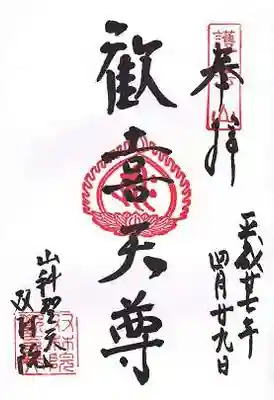 奉拝
歓喜天尊
平成廿七年
四月廿九日
山科聖天
双林院